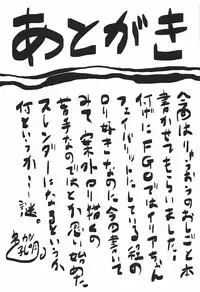 あとがき
今回はりゅうおうのおしごと本
書かせてもらいました!
何げにFGOではイリヤちゃん
フェイバリットにしている程の
ロリ好きなのに今回書いて
みて案外ロリ描くの
苦手なのではとか思い始めた
スレンダーになるというか
何というか…謎。